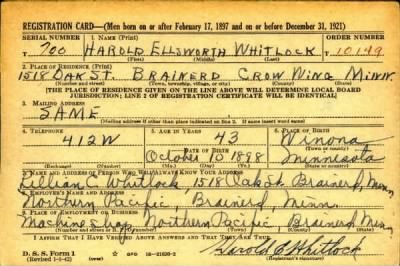 REGISTRATION CARD—(Men born on or after February 17, 1897 and on or before December 31, 1921)
SERIAL NUMBER 1. NAME (Print) ORDER NUMBER
T 700 HAROLD ELLSWORTH WHITLOCK T 10,149
(First) (Middle) (Last)
2. PLACE OF RESIDENCE (Print)
1518 OAK ST. BRAINERD CROW WING MINN.
(Number and street) (Town, township, village, or city) (County) (State)
[THE PLACE OF RESIDENCE GIVEN ON THE LINE ABOVE WILL DETERMINE LOCAL BOARD
JURISDICTION; LINE 2 OF REGISTRATION CERTIFICATE WILL BE IDENTICAL]
3. MAILING ADDRESS
SAME
[Mailing address if other than place indicated on line 2. If same insert word same]
4. TELEPHONE 5. AGE IN YEARS 6. PLACE OF BIRTH
412W 43 Winona
DATE OF BIRTH (Town or county)
October 10 1898 Minnesota
(Exchange) (Number) (Mo.) (Day) (Yr.) (State or country)
7. NAME AND ADDRESS OF PERSON WHO WILL ALWAYS KNOW YOUR ADDRESS
Lillian C Whitlock, 1518 Oak St Brainerd, Minn.
8. EMPLOYER'S NAME AND ADDRESS
Northern Pacific, Brainerd, Minn
9. PLACE OF EMPLOYMENT OR BUSINESS
Machine Shop, Northern Pacific, Brainerd, Minn,
(Number and street or R. F. D. number) (Town) (County) (State)
I AFFIRM THAT I HAVE VERIFIED ABOVE ANSWERS AND THAT THEY ARE TRUE.
D. S. S. Form 1
(Revised 1-5-42) (over) GPO 16—21630-2 Harold E Whitlock
(Registrant's signature)